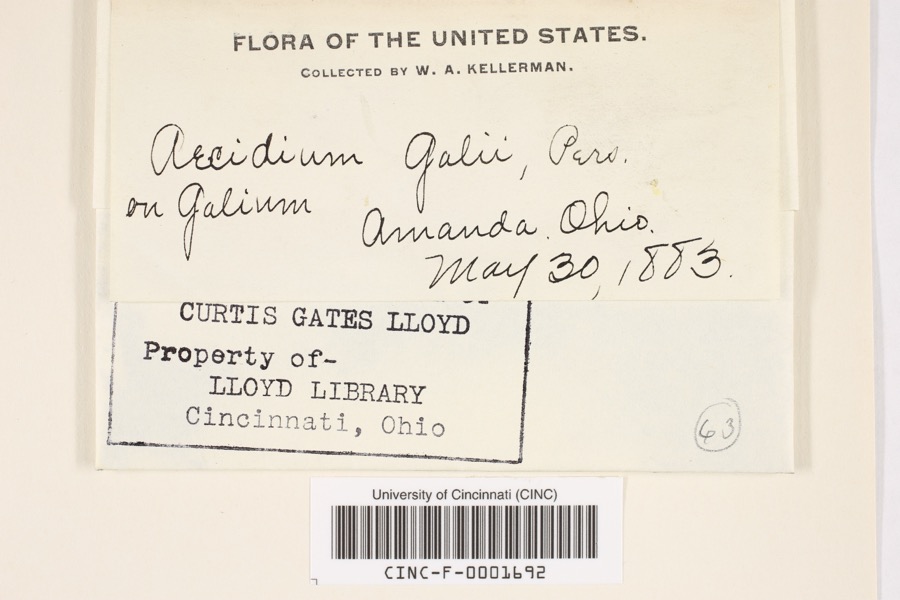 FLORA OF THE UNITED STATES.
COLLECTED BY W. A. KELLERMAN.
Aecidium Galii, Pers.
on Galium
Amanda. Ohio.
May 30, 1883.
CURTIS GATES LLOYD
Property of-
LLOYD LIBRARY
Cincinnati, Ohio
63
University of Cincinnati (CINC)
CINC-F-0001692